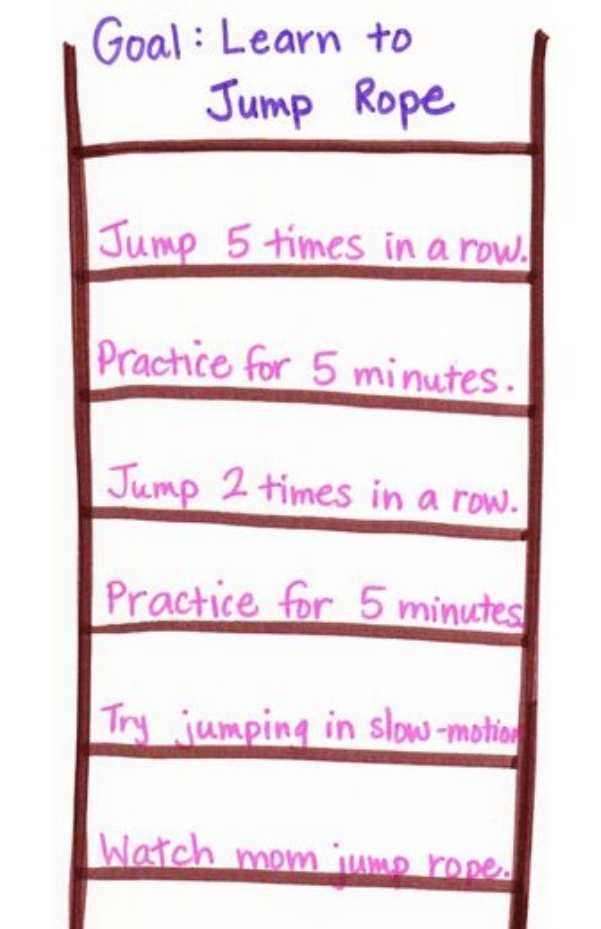 Goal: Learn to
Jump Rope
Jump 5 times in a row.
Practice for 5 minutes.
Jump 2 times in a row.
Practice for 5 minutes
Try jumping in slow-motion
Watch mom jump rope.